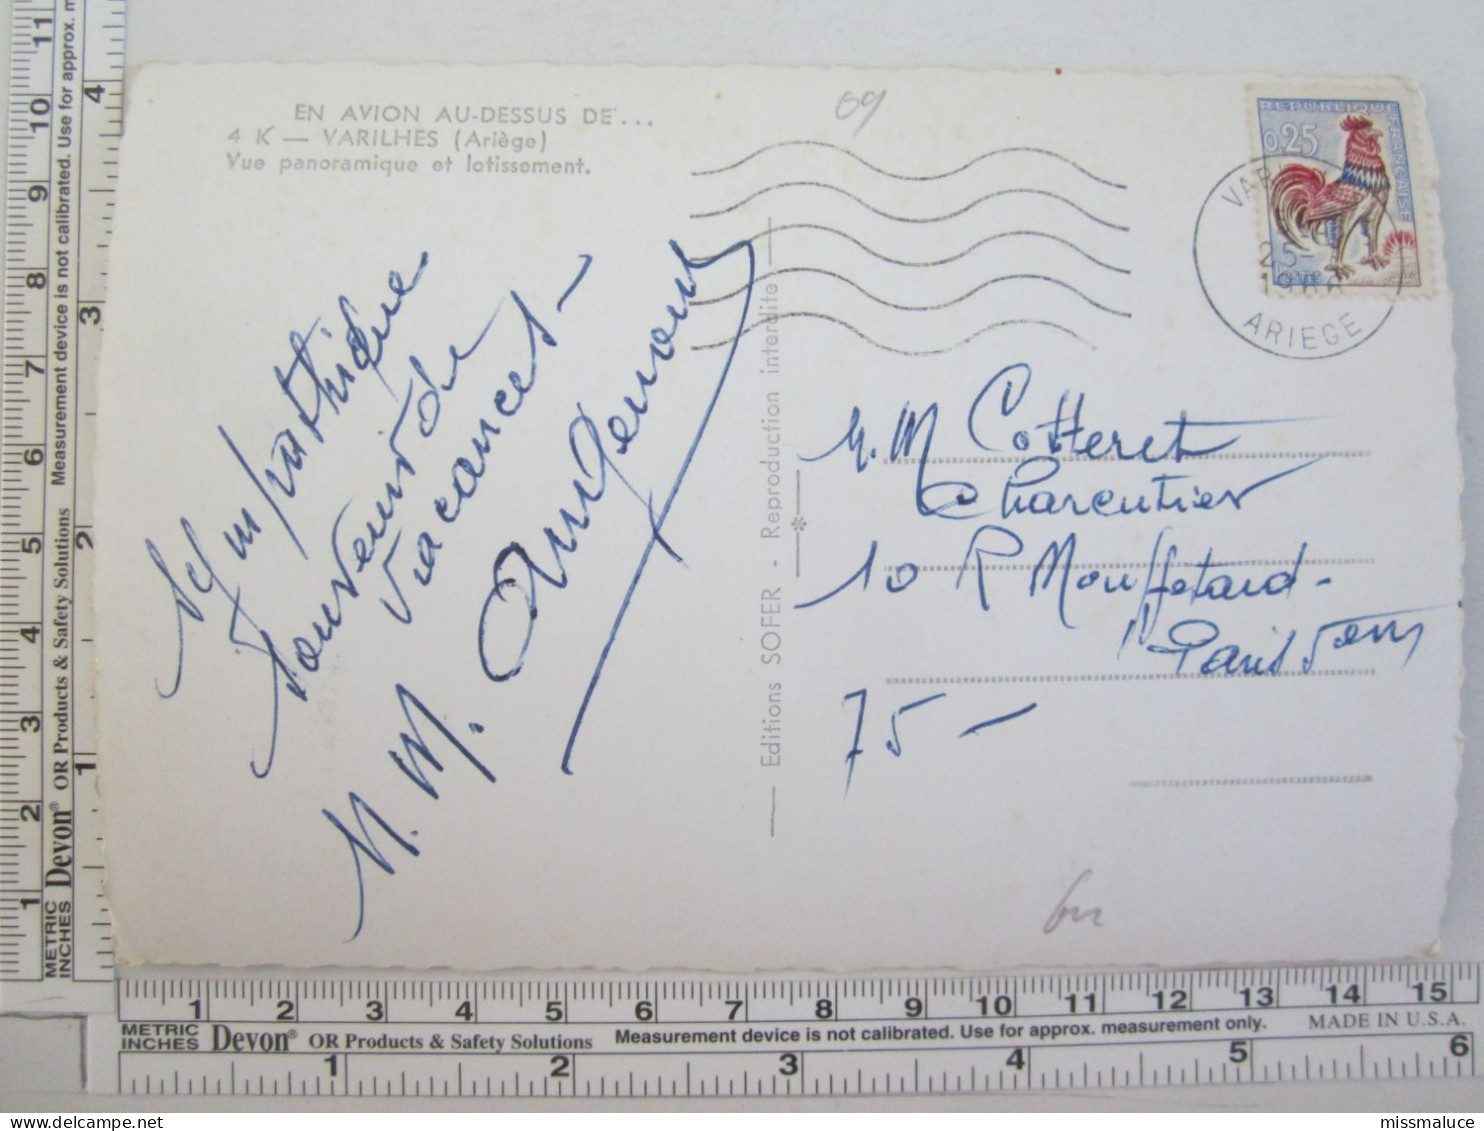 EN AVION AU-DESSUS DE...
4 K — VARILHES (Ariège)
Vue panoramique et lotissement.
09
REPUBLIQUE FRANÇAISE
0,25
POSTES
ARIEGE
Sympathique
Souvenir de
Vacances -
M. M. Angenout
Editions SOFER - Reproduction interdite
M. M Cotteret
Charcutier
10 R Mouffetard -
Paris Vem
75 -
METRIC
INCHES
Devon® OR Products & Safety Solutions
Measurement device is not calibrated. Use for approx. measurement only.
MADE IN U.S.A.
1 2 3 4 5 6 7 8 9 10 11 12 13 14 15
1 2 3 4 5 6
METRIC
INCHES
Devon® OR Products & Safety Solutions
Measurement device is not calibrated. Use for approx.
1 2 3 4 5 6 7 8 9 10 11
1 2 3 4
missmaluce
delcampe.net